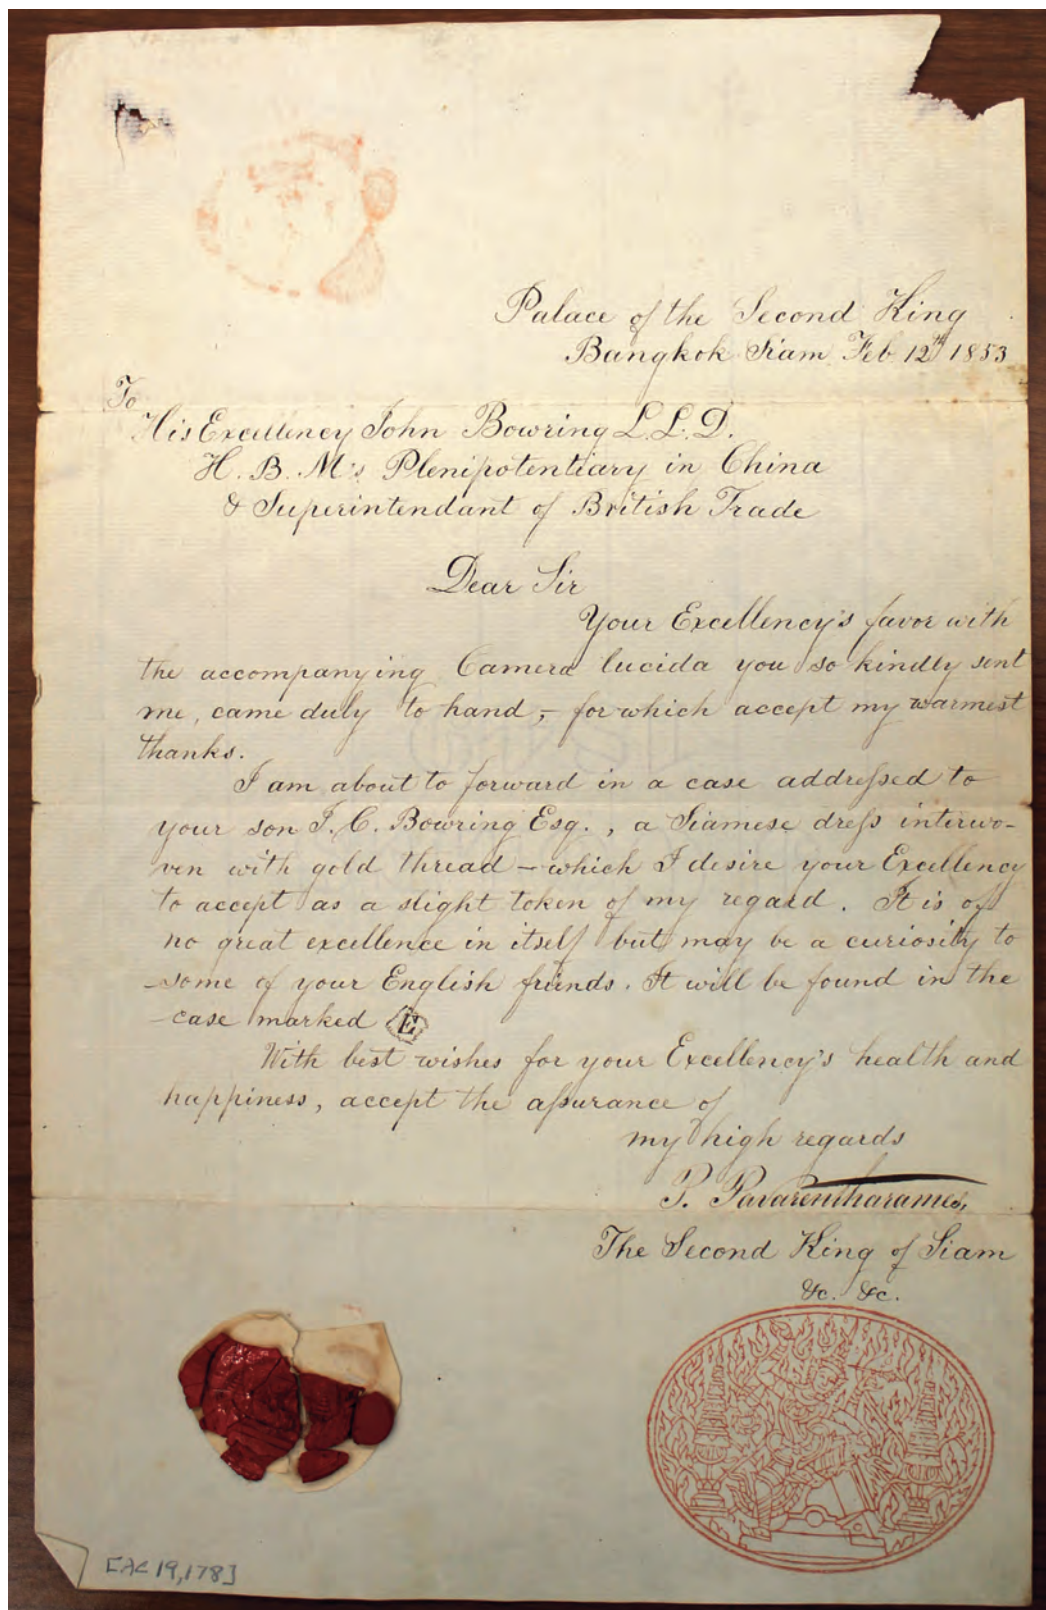 Palace of the Second King
Bangkok Siam Feb. 12th 1853
To
His Excellency John Bowring L.L.D.
H. B. M's Plenipotentiary in China
& Superintendant of British Trade
Dear Sir
Your Excellency's favor with
the accompanying Camera lucida you so kindly sent
me, came duly to hand, – for which accept my warmest
thanks.
I am about to forward in a case addressed to
your son J. C. Bowring Esq., a Siamese dress interwo-
ven with gold thread – which I desire your Excellency
to accept as a slight token of my regard. It is of
no great excellence in itself but may be a curiosity to
some of your English friends. It will be found in the
case marked E
With best wishes for your Excellency's health and
happiness, accept the assurance of
my high regards
P. Pavarentharames,
The Second King of Siam
&c. &c.
[AC 19,178]